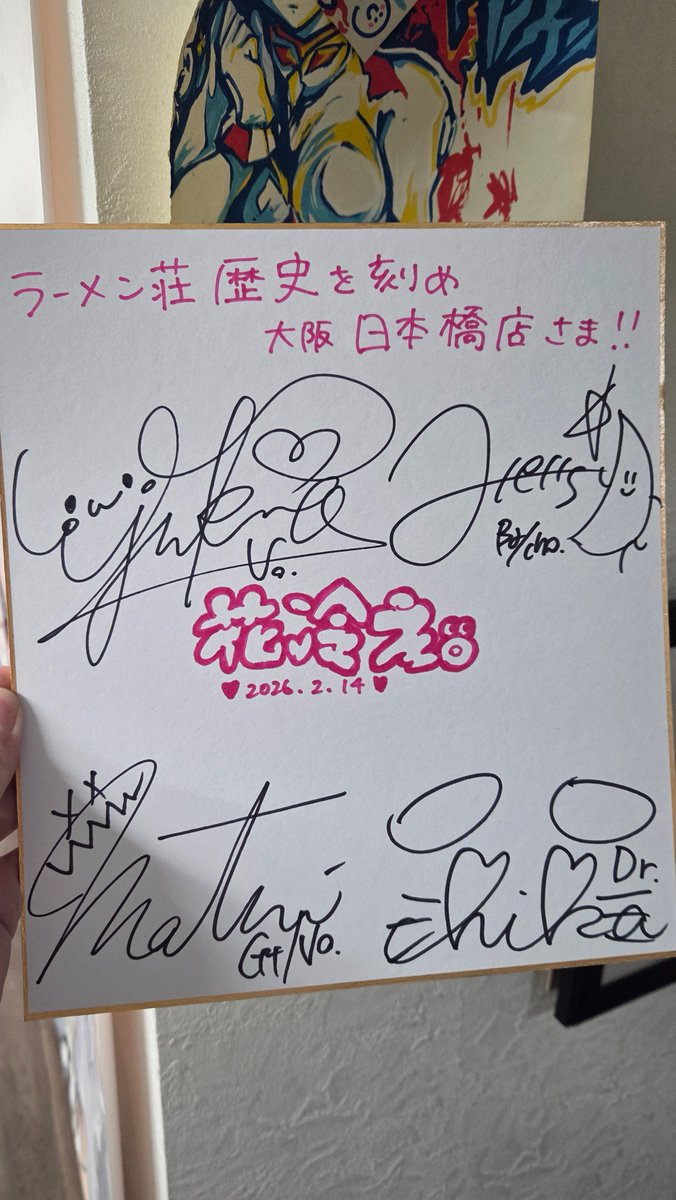 ラーメン荘 歴史を刻め
大阪 日本橋店さま!!
Yukina
Vo.
Hettsu
Ba/Cho.
花冷え。
♥2026.2.14♥
Matsuri
Gt/Vo.
Chika
Dr.